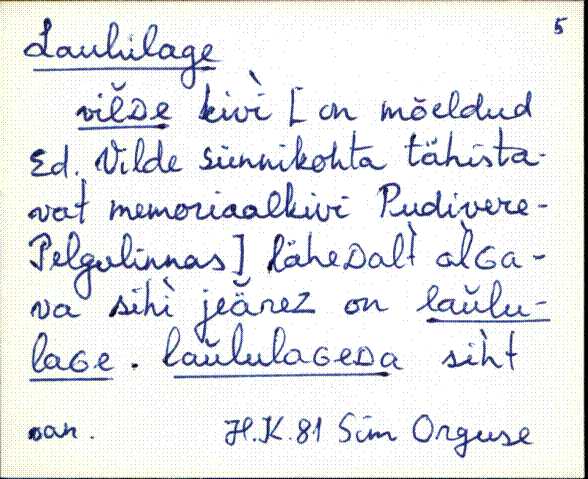 5
Lauhilage
vil̆De kivì [on mõeldud
Ed. Vilde sünnikohta tähista-
vat memoriaalkivi Pudivere-
Pelgulinnas] läheDalt̀ al̀Ga-
va sihì jeärez on laŭlu-
laGe. laŭlulaGeDa siht̀
van. H.K.81 Sim Orguse